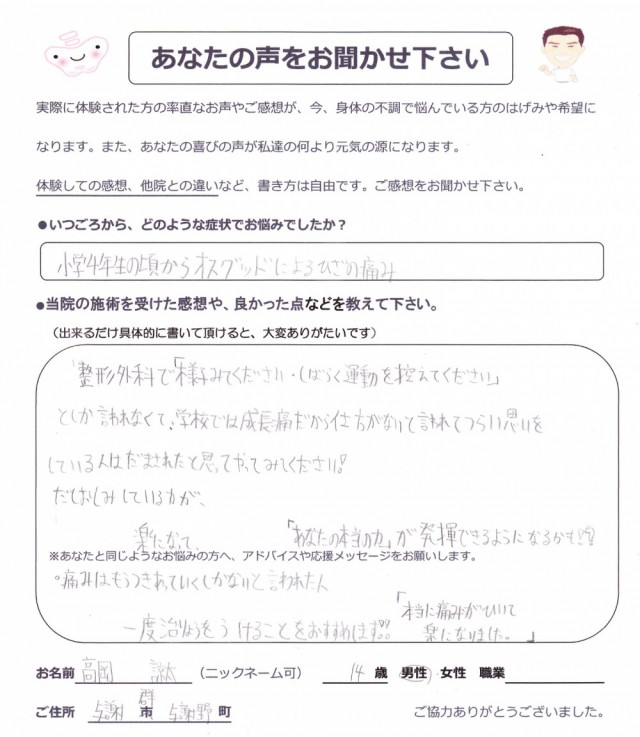 あなたの声をお聞かせ下さい
実際に体験された方の率直なお声やご感想が、今、身体の不調で悩んでいる方のはげみや希望に
なります。また、あなたの喜びの声が私達の何より元気の源になります。
体験しての感想、他院との違いなど、書き方は自由です。ご感想をお聞かせ下さい。
●いつごろから、どのような症状でお悩みでしたか？
小学4年生の頃からオスグッドによるひざの痛み
●当院の施術を受けた感想や、良かった点などを教えて下さい。
（出来るだけ具体的に書いて頂けると、大変ありがたいです）
整形外科で「様子みてください・しばらく運動を控えてください」
としか言われなくて、学校では成長痛だから仕方がないと言われてつらい思いを
している人はだまされたと思ってやってみてください!
だしおしみしている力が、
楽になって、「あなたの本当の力」が発揮できるようになるかも!?
※あなたと同じようなお悩みの方へ、アドバイスや応援メッセージをお願いします。
痛みはもうつきあっていくしかないと言われた人
一度治りょうをうけることをおすすめします!!
「本当に痛みがひいて
楽になりました。」
お名前 高岡 （ニックネーム可） 14 歳 男性 女性 職業
ご住所 与謝 郡 市 与謝野 町 ご協力ありがとうございました。